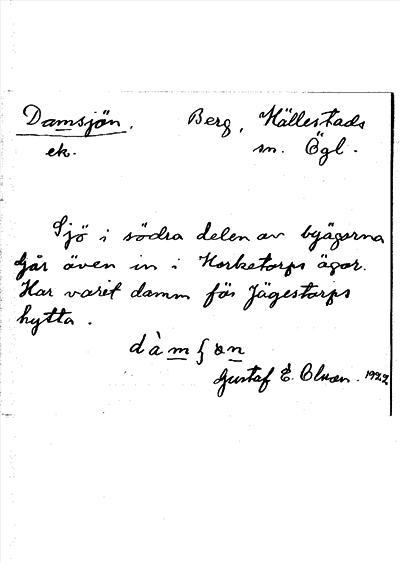 Damsjön. Berg, Hällestads
ek. sn. Ögl.
Sjö i södra delen av byägorna
Går även in i Horketorps ägor.
Har varit damm för Jägestorps
hytta.
dàmʃɷn
Gustaf E. Olson. 1922